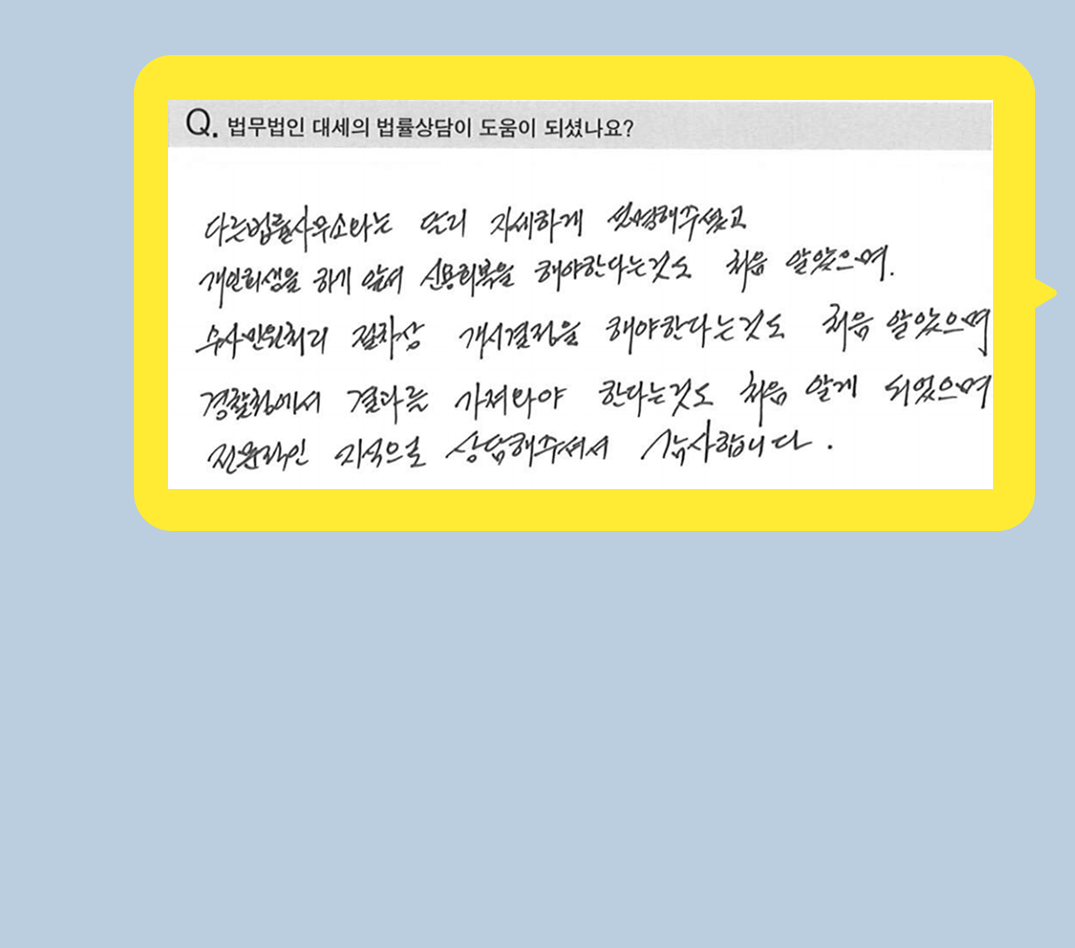 Q. 법무법인 대세의 법률상담이 도움이 되셨나요?
다른법률사무소와는 달리 자세하게 설명해주셨고
개인회생을 하기 앞서 신용회복을 해야한다는것도 처음 알았으며.
수사민원처리 절차상 개시결정을 해야한다는것도 처음 알았으며
경찰청에서 결과를 가져와야 한다는것도 처음 알게 되었으며
전문적인 지식으로 상담해주셔서 감사합니다.